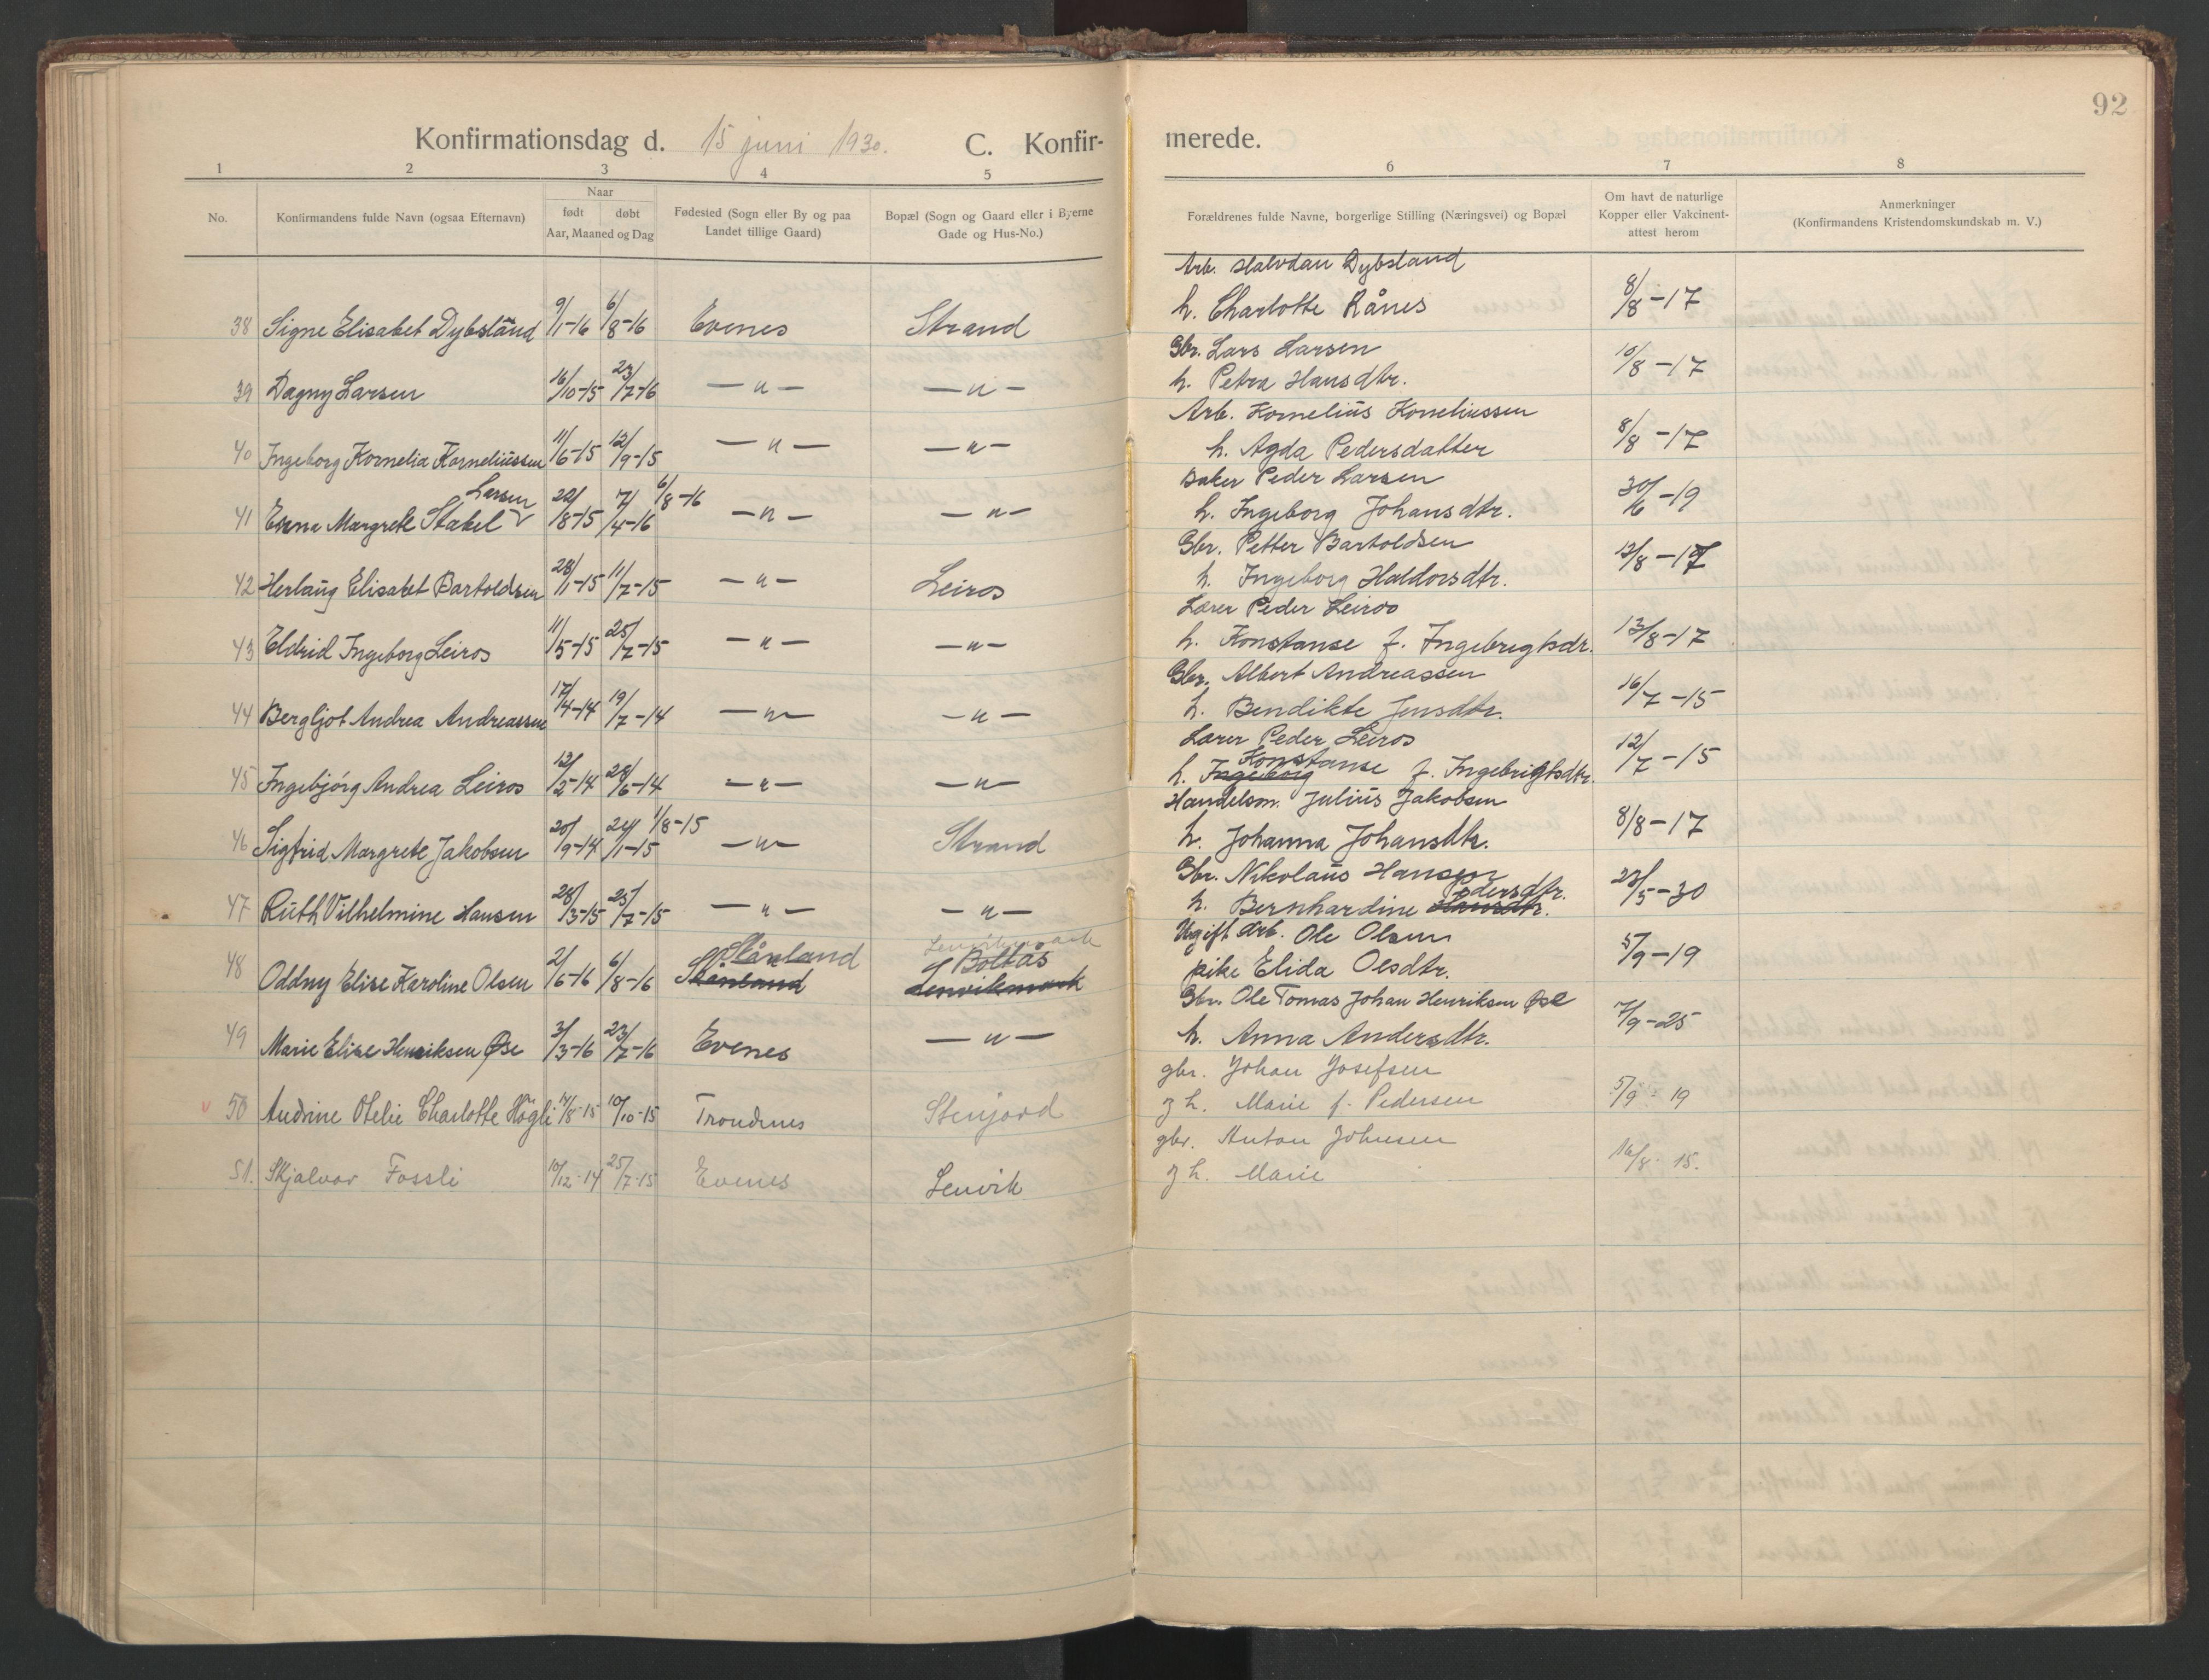 92
Konfirmationsdag d. 15 juni 1930. C. Konfir- merede.
1 2 3 4 5 6 7 8
No.
Konfirmandens fulde Navn (ogsaa Efternavn)
Naar
født døbt
Aar, Maaned og Dag
Fødested (Sogn eller By og paa
Landet tillige Gaard)
Bopæl (Sogn og Gaard eller i Byerne
Gade og Hus-No.)
Forældrenes fulde Navne, borgerlige Stilling (Næringsvei) og Bopæl
Om havt de naturlige
Kopper eller Vakcinent-
attest herom
Anmerkninger
(Konfirmandens Kristendomskundskab m. V.)
Arb. Halvdan Dybsland
38 Signe Elisabet Dybsland 9/1-16 6/8-16 Evenes Strand h. Charlotte Rånes 8/8-17
Gbr. Lars Larsen
39 Dagny Larsen 16/10-15 23/7-16 —"— —"— h. Petra Hansdtr. 10/8-17
Arb. Kornelius Korneliussen
40 Ingeborg Kornelia Korneliussen 11/6-15 12/9-15 —"— —"— h. Agda Pedersdatter 8/8-17
Larsen 6/8-16 Baker Peder Larsen
41 Erna Margrete Stakel 22/8-15 7/4-16 —"— —"— h. Ingeborg Johansdtr. 30/6-19
Gbr. Petter Bartoldsen
42 Herlaug Elisabet Bartoldsen 28/1-15 11/7-15 —"— Leiros h. Ingeborg Haldorsdtr. 12/8-17
Lærer Peder Leiros
43 Eldrid Ingeborg Leiros 11/5-15 25/7-15 —"— —"— h. Konstanse f. Ingebregtsdr. 13/8-17
Gbr. Albert Andreassen
44 Bergljot Andrea Andreassen 17/4-14 19/7-14 —"— —"— h. Bendikte Jensdtr. 16/7-15
Lærer Peder Leiros
45 Ingebjørg Andrea Leiros 12/2-14 28/6-14 —"— —"— h. Ingeborg Konstanse f. Ingebrigtsdtr. 12/7-15
1/8-15 Handelsm. Julius Jakobsen
46 Sigfrid Margrete Jakobsen 20/9-14 24/1-15 —"— Strand h. Johanna Johansdtr. 8/8-17
Gbr. Nikolaus Hansen
47 Ruth Vilhelmine Hansen 28/3-15 25/7-15 —"— —"— h. Bernhardine Hansdtr. Pedersdtr. 28/5-30
Lenvikmark
Skånland Boltås Ugift arb. Ole Olsen
48 Oddny Elise Karoline Olsen 2/6-16 6/8-16 Skånland Lenvikmark pike Elida Olsdtr. 5/9-19
Gbr. Ole Tomas Johan Henriksen Øse
49 Marie Elise Henriksen Øse 3/3-16 23/7-16 Evenes —"— h. Anna Andersdtr. 7/9-25
gbr. Johan Josefsen
50 Andrine Otelie Charlotte Högli 14/8-15 10/10-15 Trondenes Stenjord g h. Marie f. Pedersen 5/9-19
gbr. Anton Johnsen
51. Skjalvor Fossli 10/12-14 25/7-15 Evenes Lenvik g h. Marie 16/8-15.